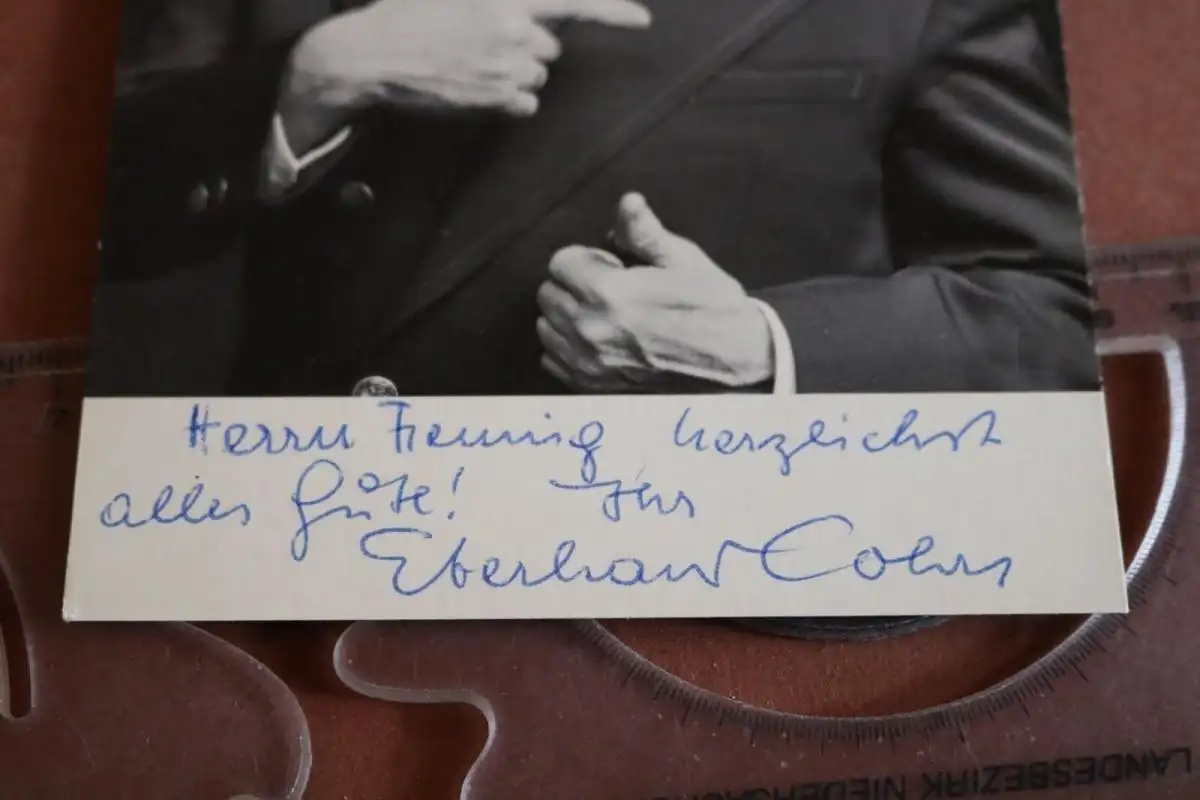 Herrn Fienning herzlichst
alles Gute! Ihr
Eberhard Cohrs
LANDESBEZIRK NIEDERSACHS